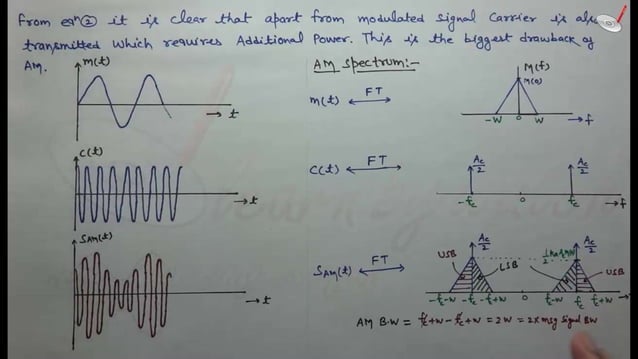 From eqn② it is clear that apart from modulated signal carrier is also
transmitted which requires Additional Power. This is the biggest drawback of
AM.
m(t)
→ t
C(t)
→ t
SAM(t)
→ t
AM Spectrum:-
m(t) ⟷ FT
M(f)
M(0)
-W 0 W → f
C(t) ⟷ FT
Ac/2 Ac/2
-fc 0 fc → f
SAM(t) ⟷ FT
Ac/2 Ac/2
USB LSB USB
-fc-W -fc -fc+W 0 fc-W fc fc+W
AM B.W = fc+W - fc+W = 2W = 2x msg signal BW